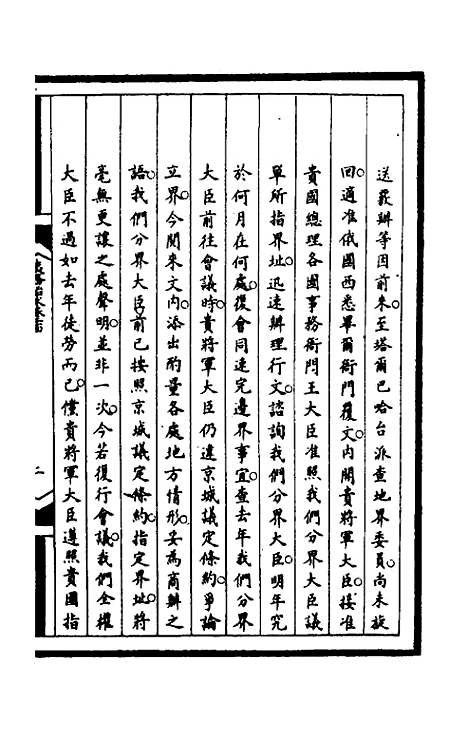 送嚴辦等因前來至塔爾巴哈台派查地界委員尚未旋
回適准俄國西悉畢爾衙門覆文內開貴將軍大臣接准
貴國總理各國事務衙門王大臣准照我們分界大臣議
單所指界址迅速辦理行文諮詢我們分界大臣明年究
於何月在何處復會同速完邊界事宜查去年我們分界
大臣前往會議時貴將軍大臣仍違京城議定條約爭論
立界今閱來文內添出酌量各處地方情形妥為商辦之
語我們分界大臣前已按照京城議定條約指定界址將
毫無更讓之處聲明並非一次今若復行會議我們全權
大臣不過如去年徒勞而已儻貴將軍大臣遵照貴國指
二